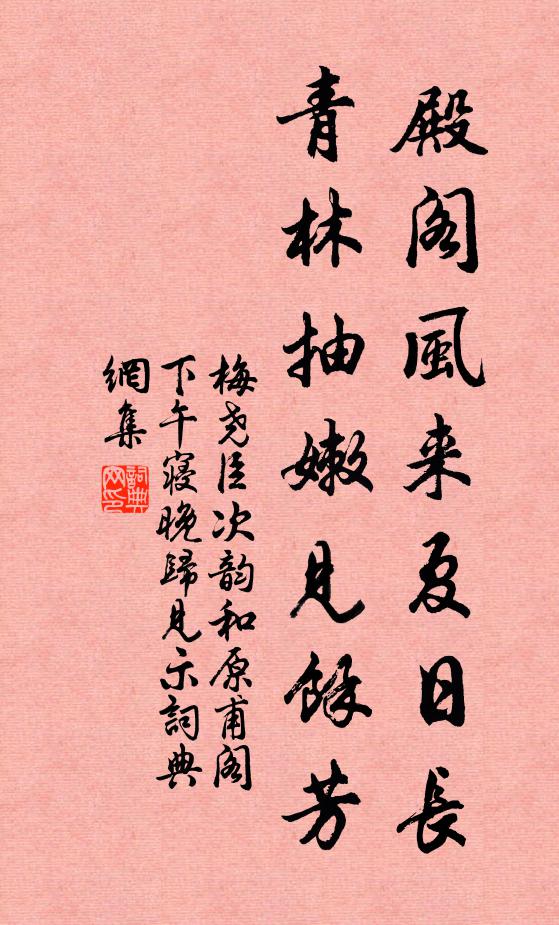 殿阁風来夏日長
青林抽嫩見餘芳
梅尧臣次韵和原甫阁
下午寝晚歸見示詞典
網集
詞典
网印